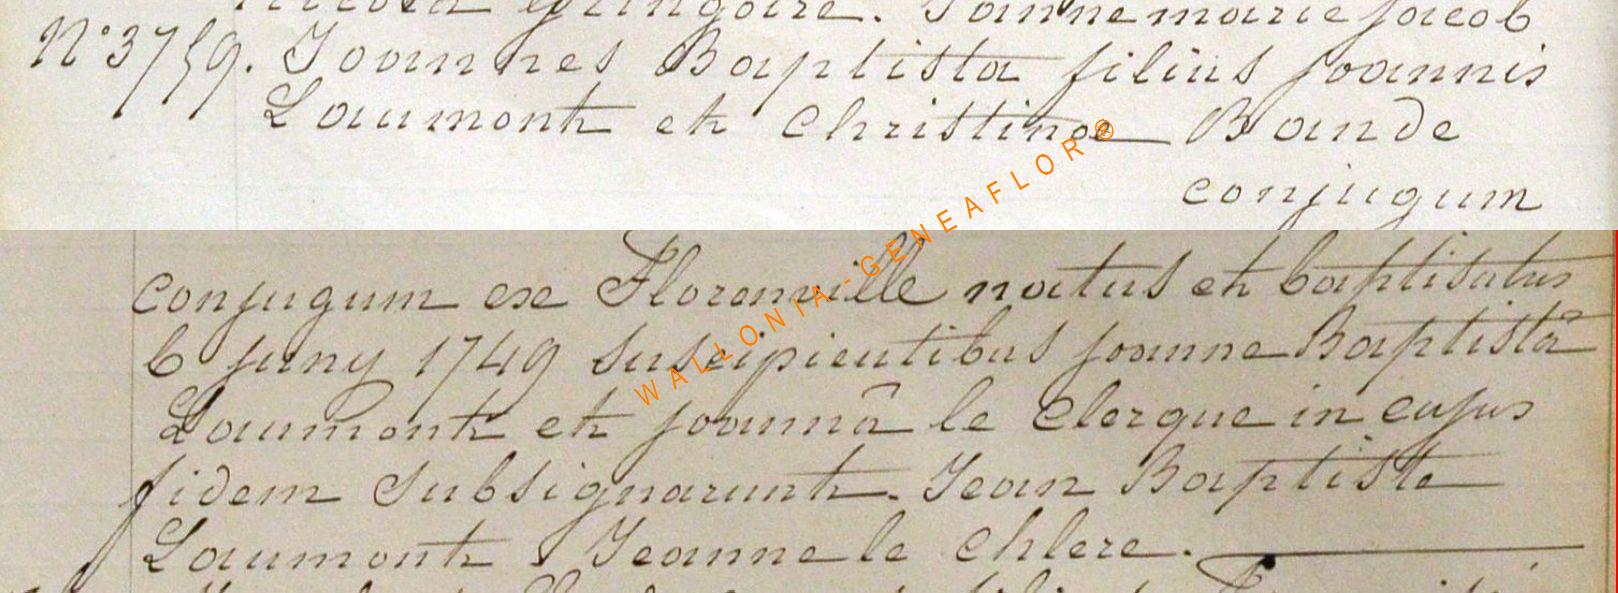 Nicola Gringoire. Jannemarie jacob
N° 3759. Joannes Baptista filius joannis
Laumont et Christinæ Bande
conjugum
conjugum ex Florenville natus et baptisatus
6 juny 1749 suscipientibus joanne Baptistâ
Laumont et joannâ le Clerque in cujus
fidem subsignarunt. Jean Baptiste
Laumont Jeanne le Chlere.
WALLONIA-GENEAFLOR®